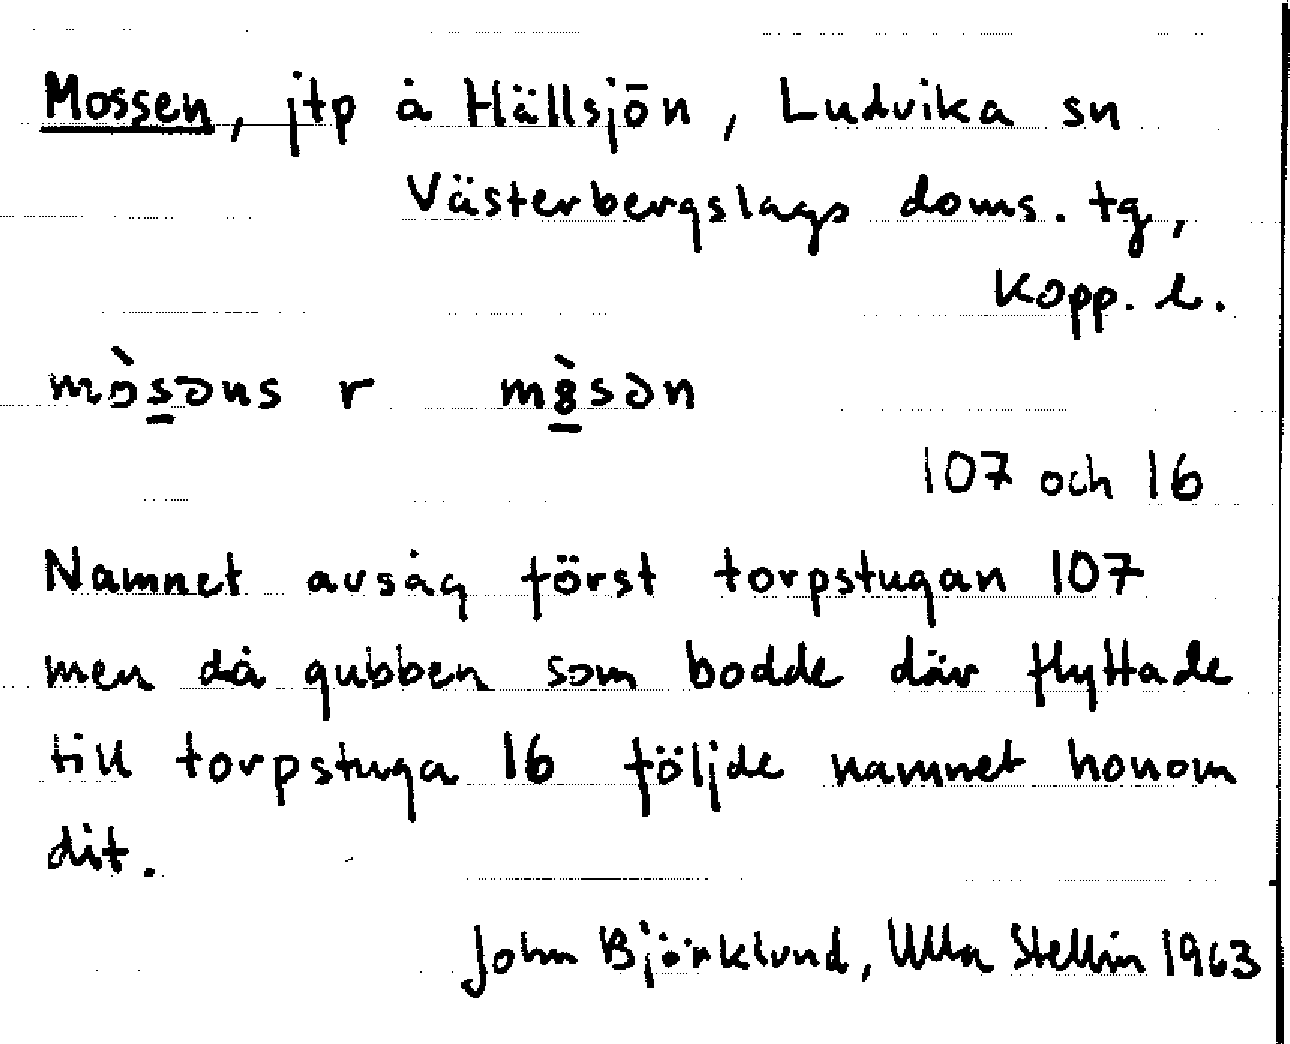 Mossen, jtp å Hällsjön, Ludvika sn
Västerbergslags doms. tg,
Kopp. l.
mò̀s̲əns r mȍ̲sən
107 och 16
Namnet avsåg först torpstugan 107
men då gubben som bodde där flyttade
till torpstuga 16 följde namnet honom
dit.
John Björklund, Ulla Stellin 1963